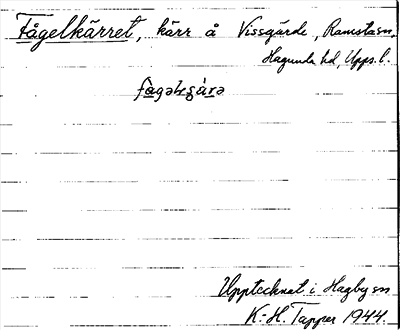 Fågelkärret, kärr å Vissgärde, Ramsta sn,
Hagunda hd, Upps. l.
Upptecknat i Hagby sn
K.-H. Tapper 1944.